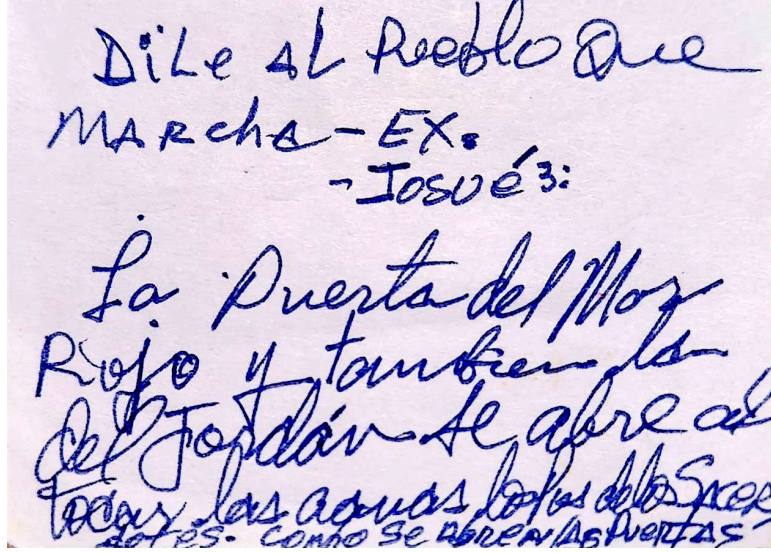 DiLe AL Pueblo Que
MARcha - EX.
- Josué 3:
La Puerta del Mar
Rojo y tambien la
del Jordán se abre al
tocar las aguas los pies de los SACER
dotes. COMO SE ABREN LAS PUERTAS